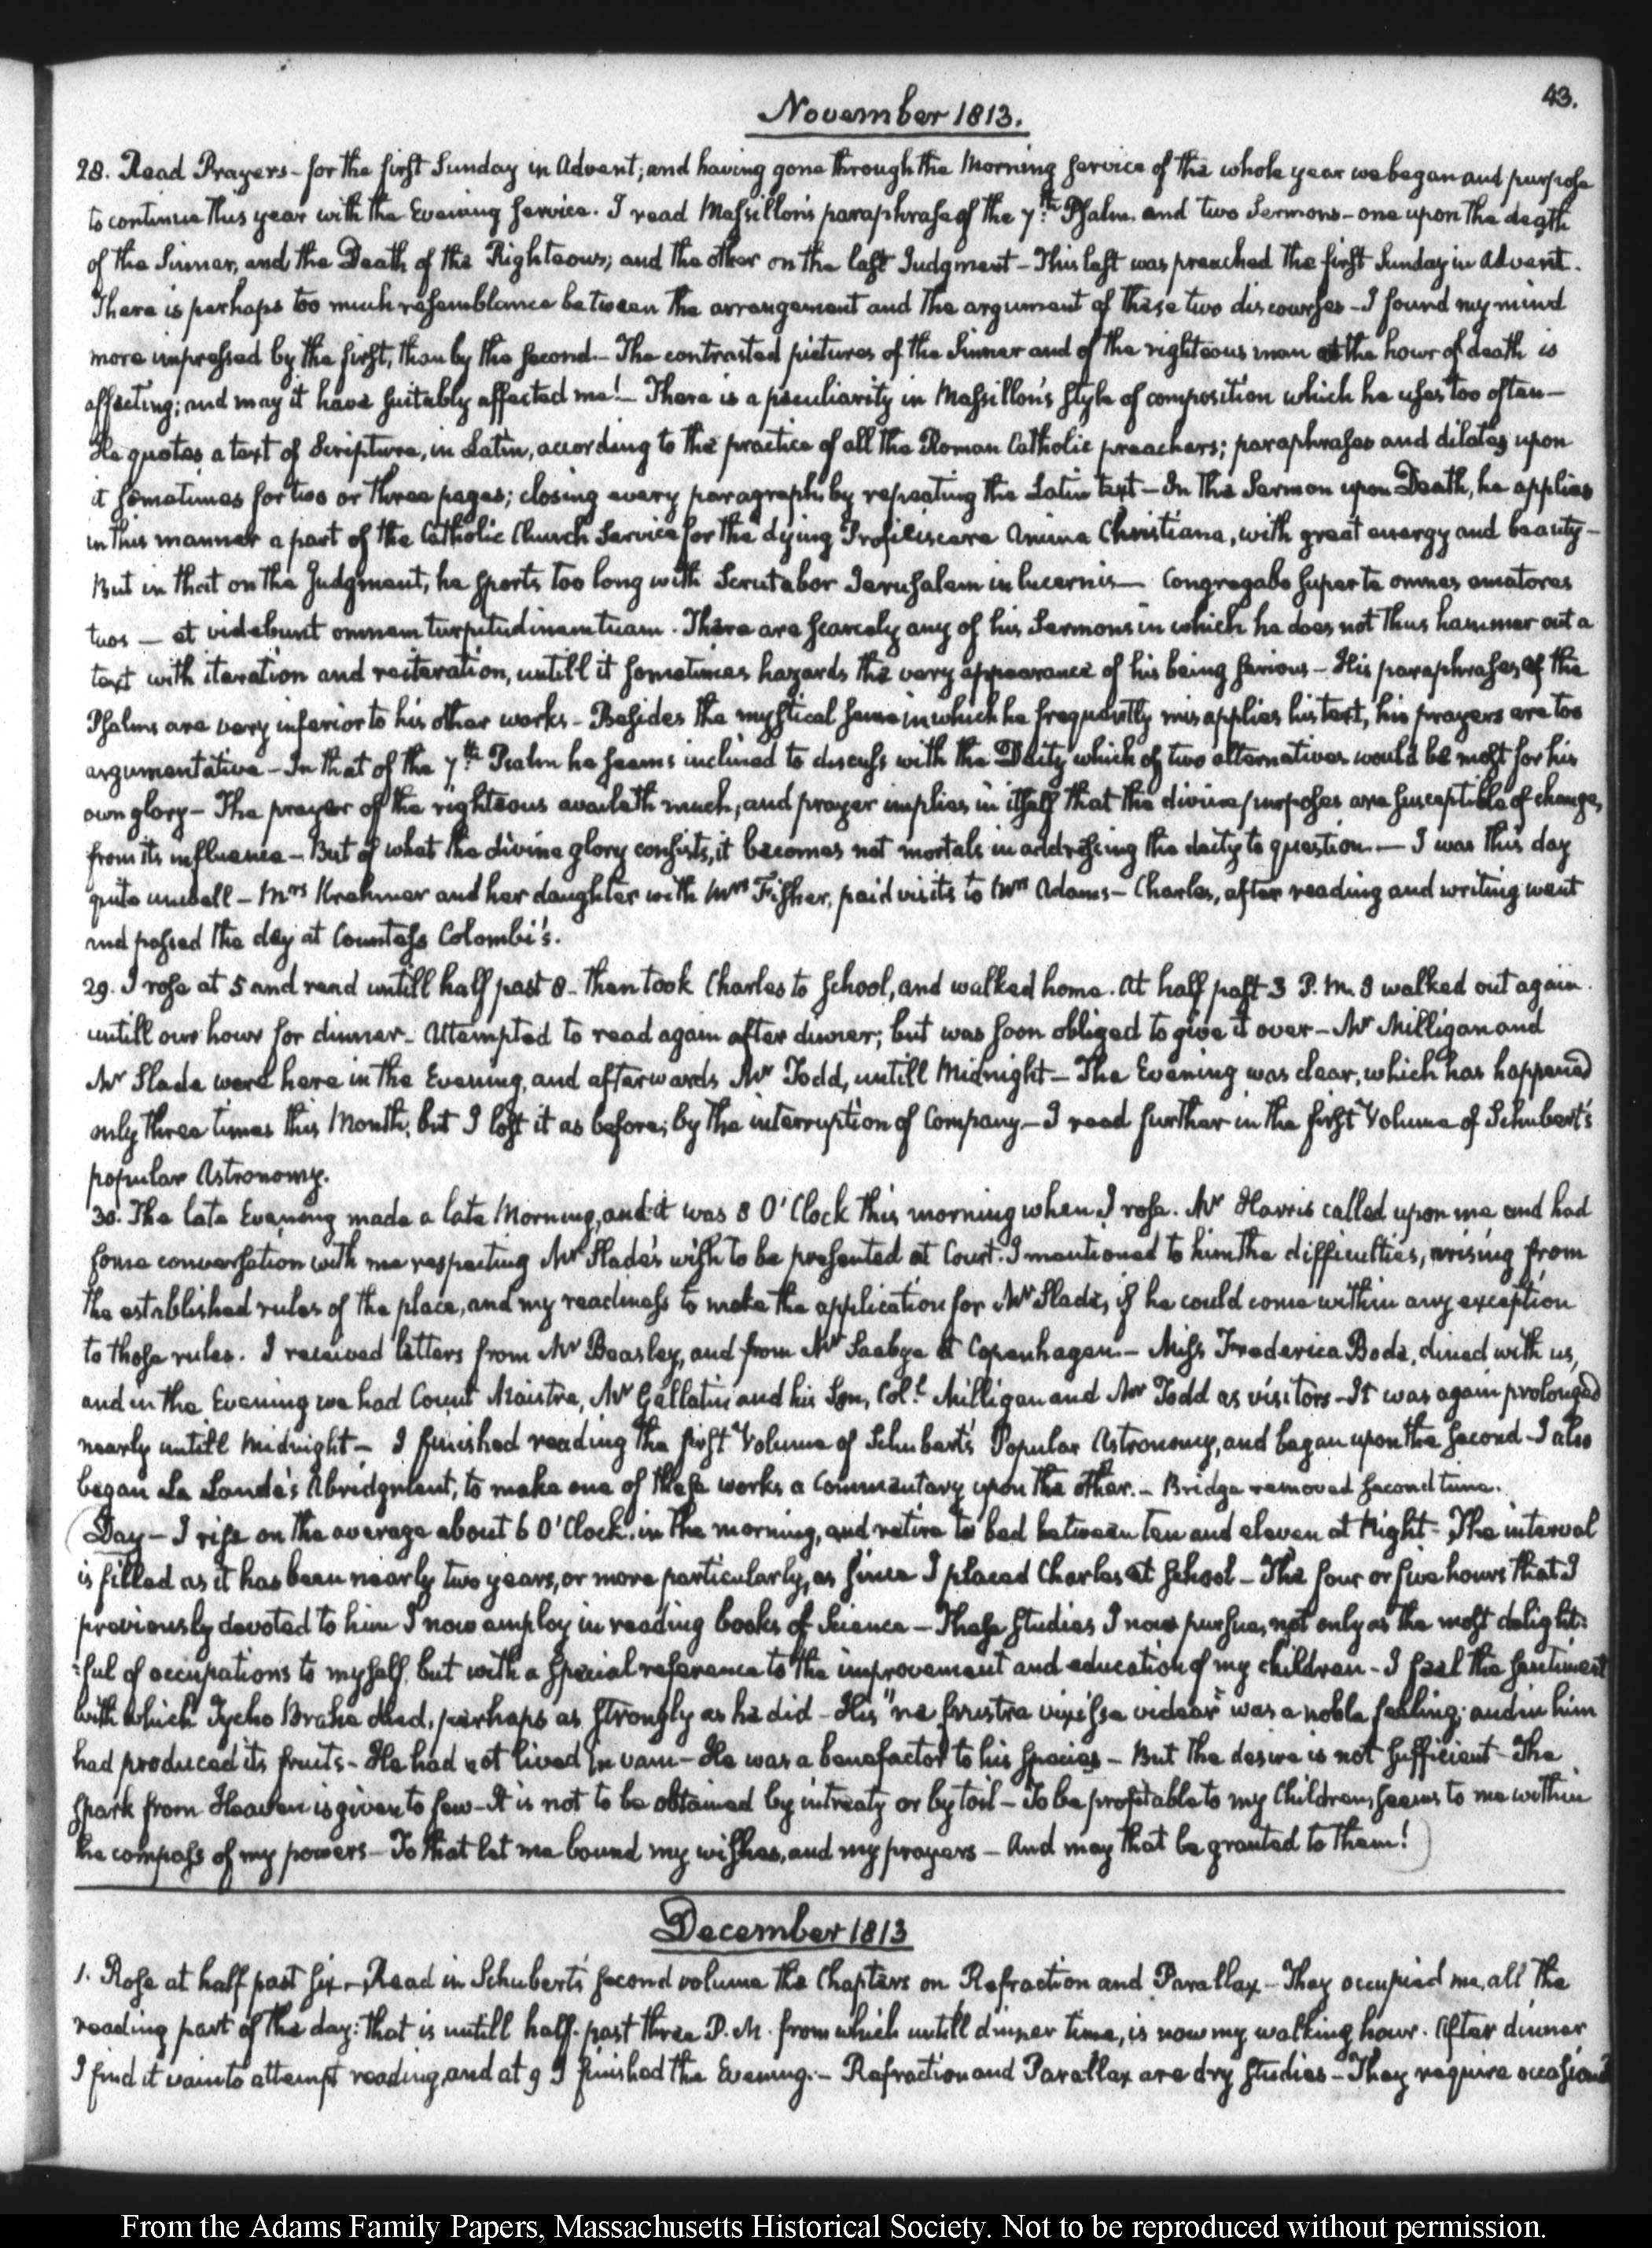 43.
November 1813.
28. Read Prayers - for the first Sunday in Advent; and having gone through the Morning service of the whole year we began and purpose
to continue this year with the Evening service. I read Massillon's paraphrase of the 7.th Psalm. and two Sermons - one upon the death
of the Sinner, and the Death of the Righteous; and the other on the last Judgment - This last was preached the first Sunday in Advent.
There is perhaps too much resemblance between the arrangement and the argument of these two discourses - I found my mind
more impressed by the first, than by the second. - The contrasted pictures of the Sinner and of the righteous man at the hour of death is
affecting; and may it have suitably affected me! - There is a peculiarity in Massillon's style of composition which he uses too often -
He quotes a text of Scripture, in Latin, according to the practice of all the Roman Catholic preachers; paraphrases and dilates upon
it sometimes for two or three pages; closing every paragraph by repeating the Latin text - In the Sermon upon Death, he applies
in this manner a part of the Catholic Church Service for the dying Proficiscere Anima Christiana, with great energy and beauty -
But in that on the Judgment, he sports too long with Scrutabor Jerusalem in lucernis - Congregabo super te omnes amatores
tuos - et videbunt omnem turpitudinem tuam. There are scarcely any of his Sermons in which he does not thus hammer out a
text with iteration and reiteration, untill it sometimes hazards the very appearance of his being serious - His paraphrases of the
Psalms are very inferior to his other works - Besides the mystical sense in which he frequently misapplies his text, his prayers are too
argumentative - In that of the 7.th Psalm he seems inclined to discuss with the Deity which of two alternatives would be most for his
own glory - The prayer of the righteous availeth much, and prayer implies in itself that the divine purposes are susceptible of change,
from its influence - But of what the divine glory consists, it becomes not mortals in addressing the deity to question. - I was this day
quite unwell - Mrs Krehmer and her daughter with Mrs Fisher, paid visits to Mrs Adams - Charles, after reading and writing went
and passed the day at Countess Colombi's.
29. I rose at 5 and read untill half past 8 - then took Charles to School, and walked home. At half past 3 P.M. I walked out again
untill our hour for dinner - Attempted to read again after dinner; but was soon obliged to give it over - Mr Milligan and
Mr Slade were here in the Evening, and afterwards Mr Todd, untill Midnight - The Evening was clear, which has happened
only three times this Month; but I lost it as before; by the interruption of Company. - I read further in the first Volume of Schubert's
popular Astronomy.
30. The late Evening made a late Morning, and it was 8 O'Clock this morning when I rose. Mr Harris called upon me and had
some conversation with me respecting Mr Slade's wish to be presented at Court. I mentioned to him the difficulties, arising from
the established rules of the place, and my readiness to make the application for Mr Slade, if he could come within any exception
to those rules. I received letters from Mr Beasley, and from Mr Saabye at Copenhagen. - Miss Frederica Bode, dined with us,
and in the Evening we had Count Maistre, Mr Gallatin and his Son, Col.l Milligan and Mr Todd as visitors - It was again prolonged
nearly untill Midnight - I finished reading the first Volume of Schubert's Popular Astronomy, and began upon the second - I also
began La Lande's Abridgment, to make one of these works a Commentary upon the other. - Bridge removed second time.
Day - I rise on the average about 6 O'Clock in the morning, and retire to bed between ten and eleven at Night - The interval
is filled as it has been nearly two years, or more particularly, as since I placed Charles at School - The four or five hours that I
previously devoted to him I now employ in reading books of Science - These studies I now pursue, not only as the most delight:
:ful of occupations to myself, but with a special reference to the improvement and education of my children - I feel the sentiment
with which Tycho Brahe died, perhaps as strongly as he did - His "ne frustra vixisse videar" was a noble feeling; and in him
had produced its fruits - He had not lived in vain - He was a benefactor to his species - But the desire is not sufficient - The
spark from Heaven is given to few - It is not to be obtained by intreaty or by toil - To be profitable to my Children, seems to me within
the compass of my powers - To that let me bound my wishes, and my prayers - And may that be granted to them!
December 1813
1. Rose at half past six. - Read in Schubert's second volume the Chapters on Refraction and Parallax - They occupied me all the
reading part of the day: that is untill half-past three P.M. from which untill dinner time, is now my walking hour. After dinner
I find it vain to attempt reading, and at 9 I finished the Evening. - Refraction and Parallax are dry studies - They require occasional
From the Adams Family Papers, Massachusetts Historical Society. Not to be reproduced without permission.